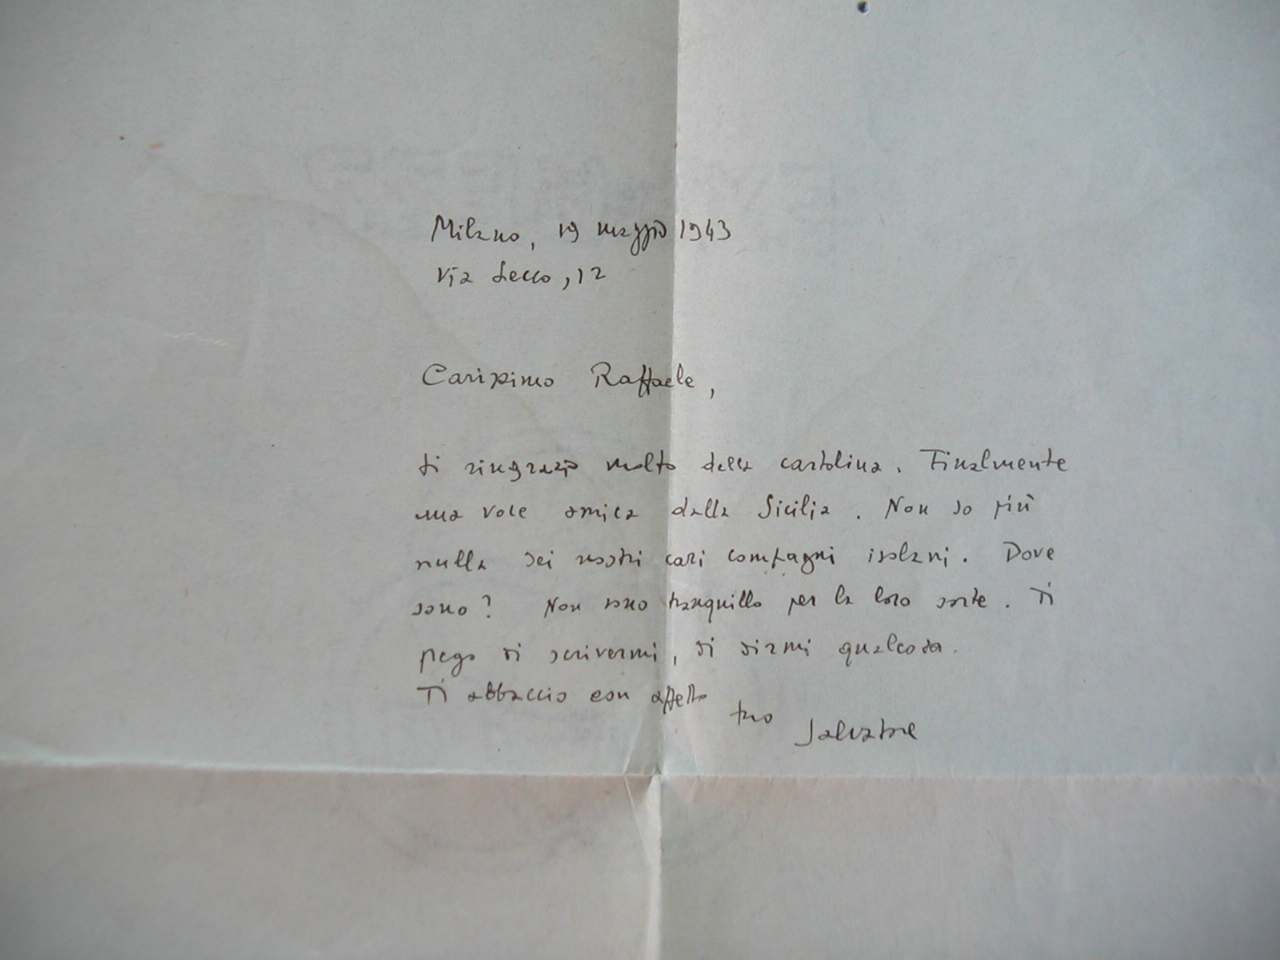 Milano, 19 maggio 1943
Via Lecco, 12
Carissimo Raffaele,
ti ringrazio molto della cartolina. Finalmente
una voce amica dalla Sicilia. Non so più
nulla dei nostri cari compagni isolani. Dove
sono? Non sono tranquillo per la loro sorte. Ti
prego di scrivermi, di dirmi qualcosa.
Ti abbraccio con affetto
tuo Salvatore